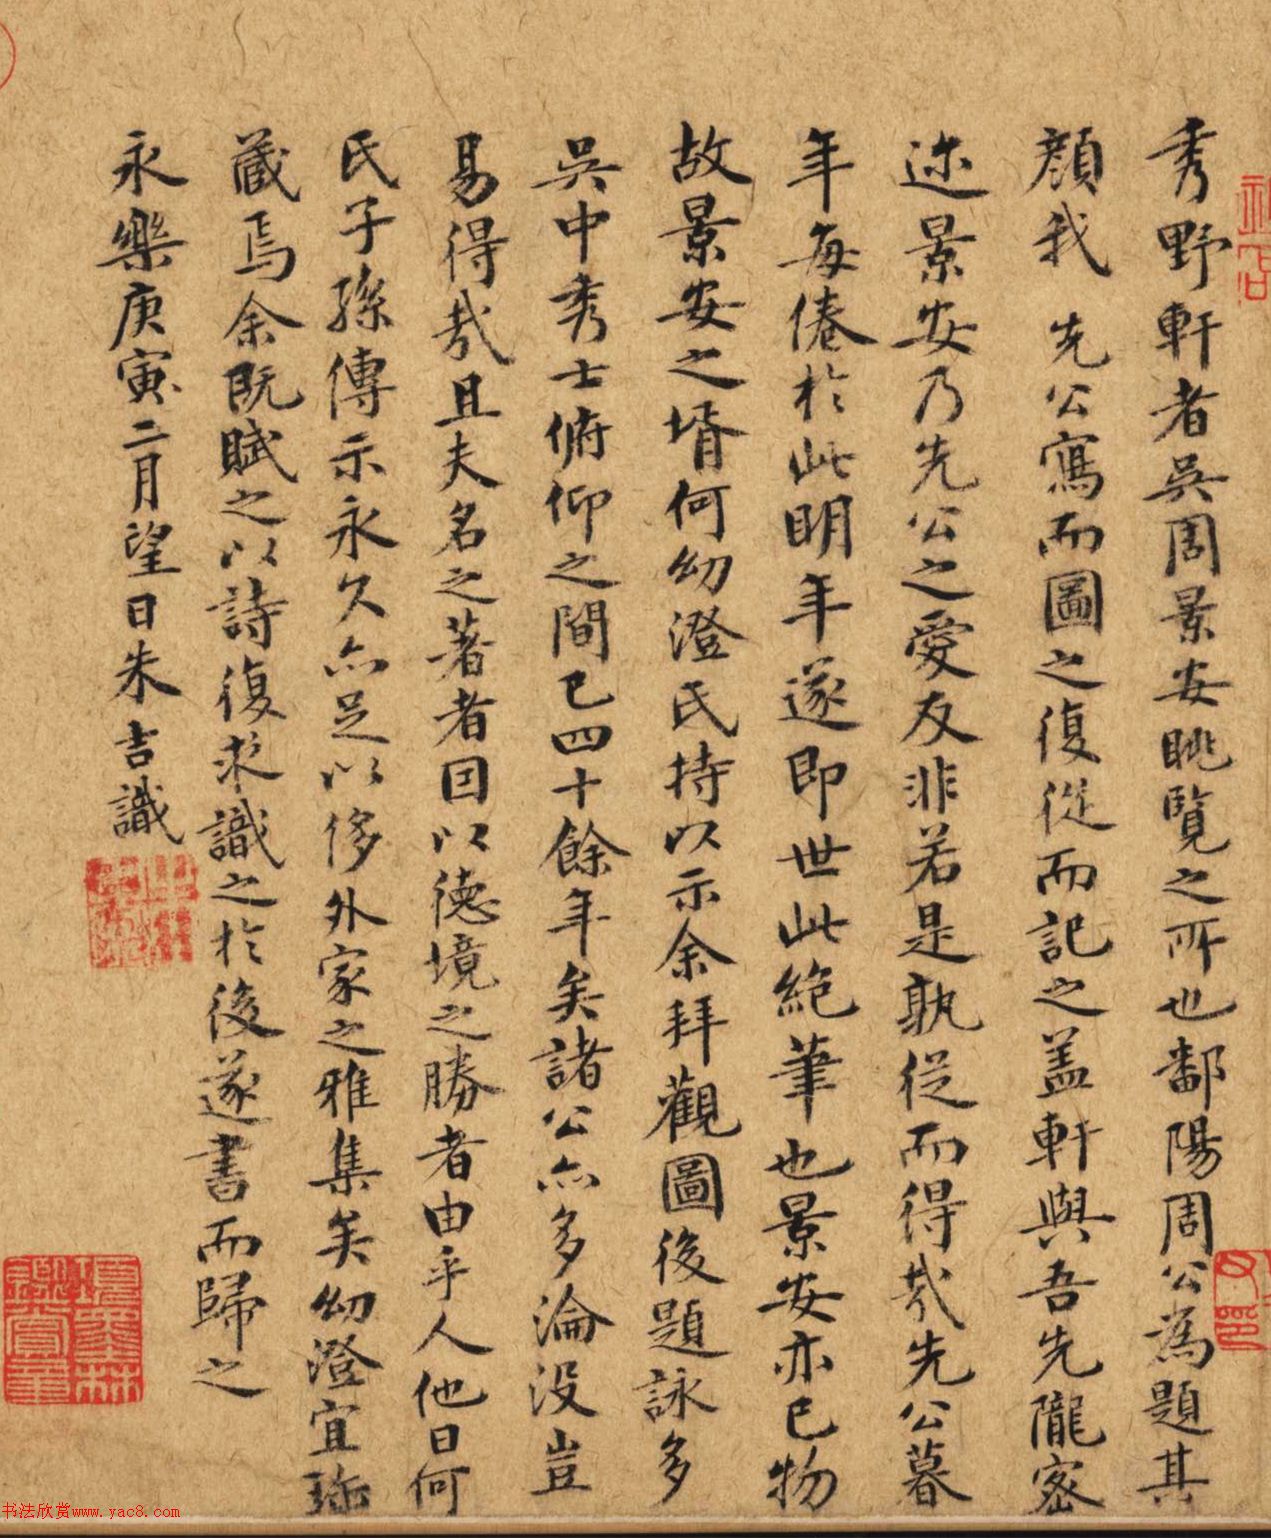 秀野軒者吳周景安眺覽之所也鄱陽周公為題其
顏我 先公寫而圖之復從而記之盖軒與吾先隴密
迩景安乃先公之愛友非若是孰從而得哉先公暮
年每倦於此明年遂即世此絶筆也景安亦已物
故景安之壻何幼澄氏持以示余拜觀圖後題詠多
吳中秀士俯仰之間已四十餘年矣諸公亦多淪没豈
易得哉且夫名之著者因以德境之勝者由乎人他日何
氏子孫傳示永久亦足以侈外家之雅集矣幼澄宜珎
藏焉余既賦之以詩復求識之於後遂書而歸之
永樂庚寅二月望日朱吉識
书法欣赏www.yac8.com